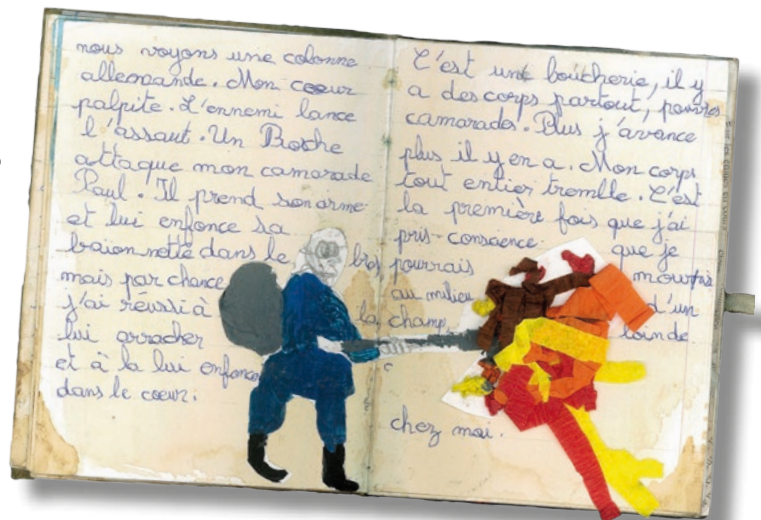 nous voyons une colonne
allemande. Mon coeur
palpite. L'ennemi lance
l'assaut. Un Boche
attaque mon camarade
Paul. Il prend son arme
et lui enfonce sa
baionnette dans le bras
mais par chance
j'ai réussi à la
lui arracher
et à la lui enfoncer
dans le coeur.
C'est une boucherie, il y
a des corps partout, pauvres
camarades. Plus j'avance
plus il y en a. Mon corps
tout entier tremble. C'est
la première fois que j'ai
pris conscience que je
pourrais mourrir
au milieu d'un
champ loin de
chez moi.